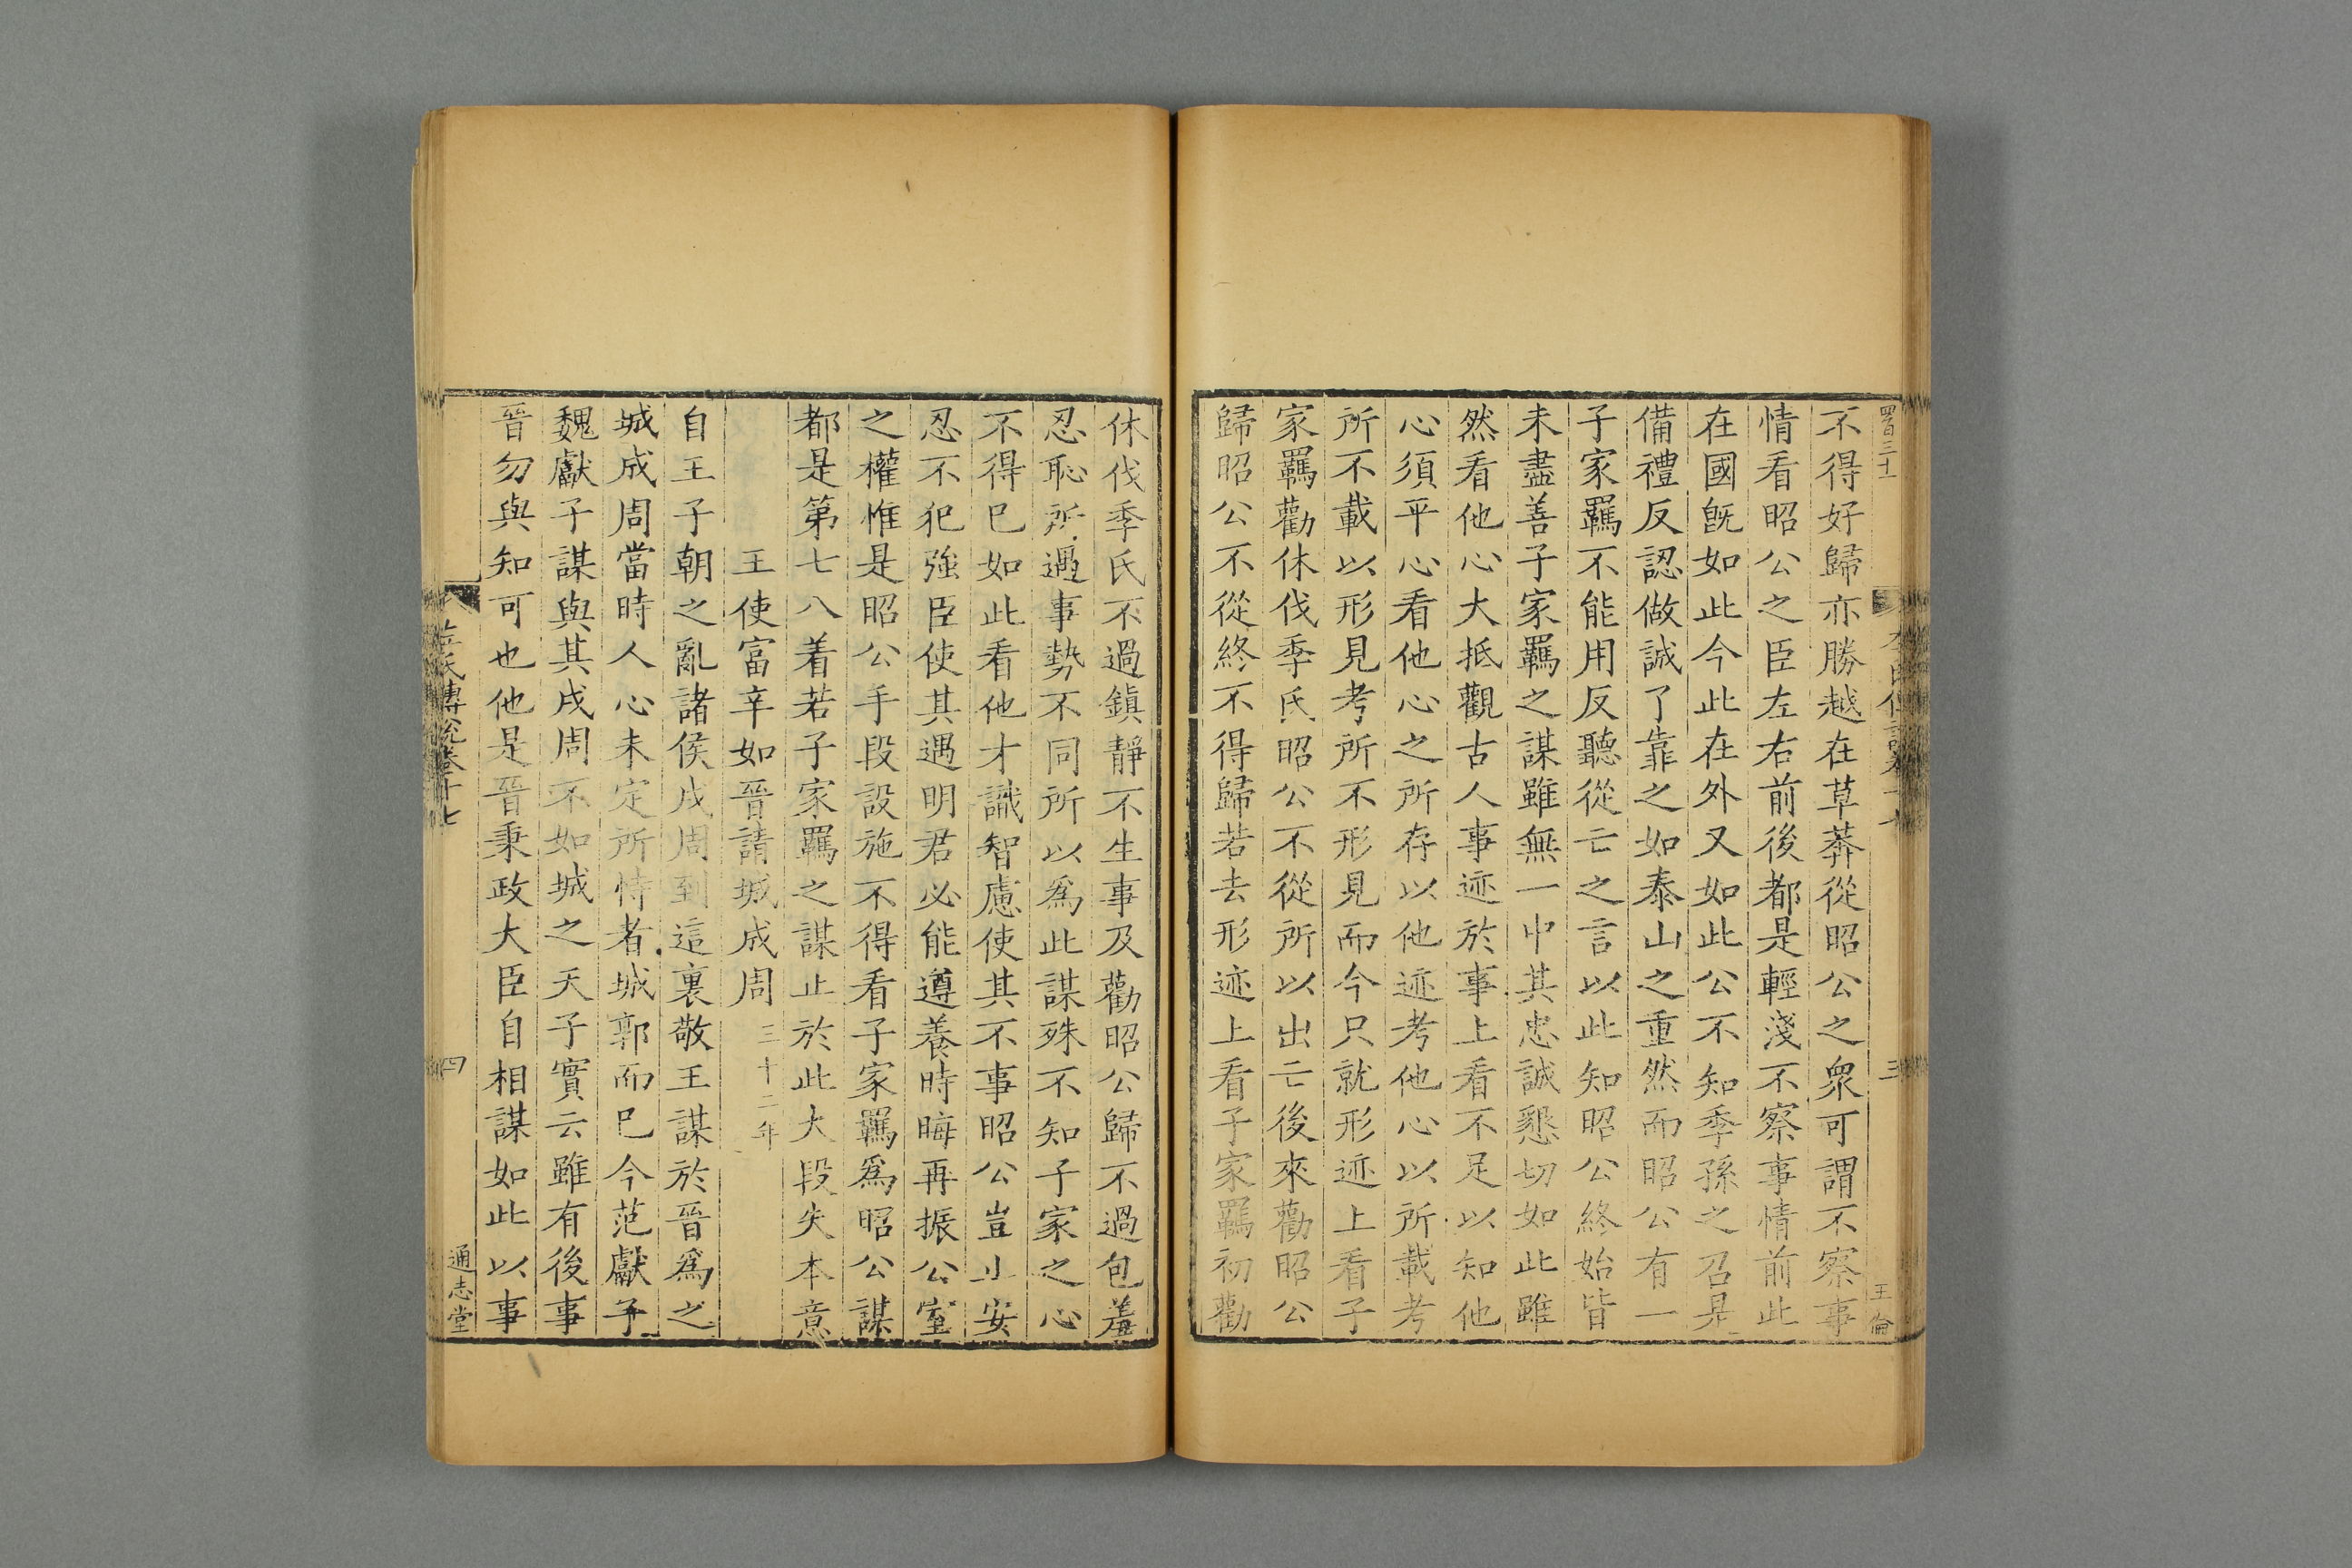 不得好歸亦勝越在草莽從昭公之衆可謂不察事
情看昭公之臣左右前後都是輕淺不察事情前此
在國旣如此今此在外又如此公不知季孫之召是
備禮反認做誠了靠之如泰山之重然而昭公有一
子家羈不能用反聽從亡之言以此知昭公終始皆
未盡善子家羈之謀雖無一中其忠誠懇切如此雖
然看他心大抵觀古人事迹於事上看不足以知他
心須平心看他心之所存以他迹考他心以所載考
所不載以形見考所不形見而今只就形迹上看子
家羈勸休伐季氏昭公不從所以出亡後來勸昭公
歸昭公不從終不得歸若去形迹上看子家羈初勸
三
王倫
休伐季氏不過鎮靜不生事及勸昭公歸不過包羞
忍恥所遇事勢不同所以爲此謀殊不知子家之心
不得已如此看他才識智慮使其不事昭公豈止安
忍不犯強臣使其遇明君必能遵養時晦再振公室
之權惟是昭公手段設施不得看子家羈爲昭公謀
都是第七八着若子家羈之謀止於此大段失本意
王使富辛如晉請城成周三十二年
自王子朝之亂諸侯戍周到這裏敬王謀於晉爲之
城成周當時人心未定所恃者城郭而已今范獻子
魏獻子謀與其戍周不如城之天子實云雖有後事
晉勿與知可也他是晉秉政大臣自相謀如此以事
左氏傳說卷十七
四
通志堂